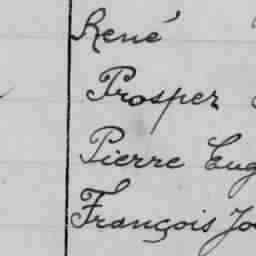 René
Prosper
Pierre Eug
François Jo